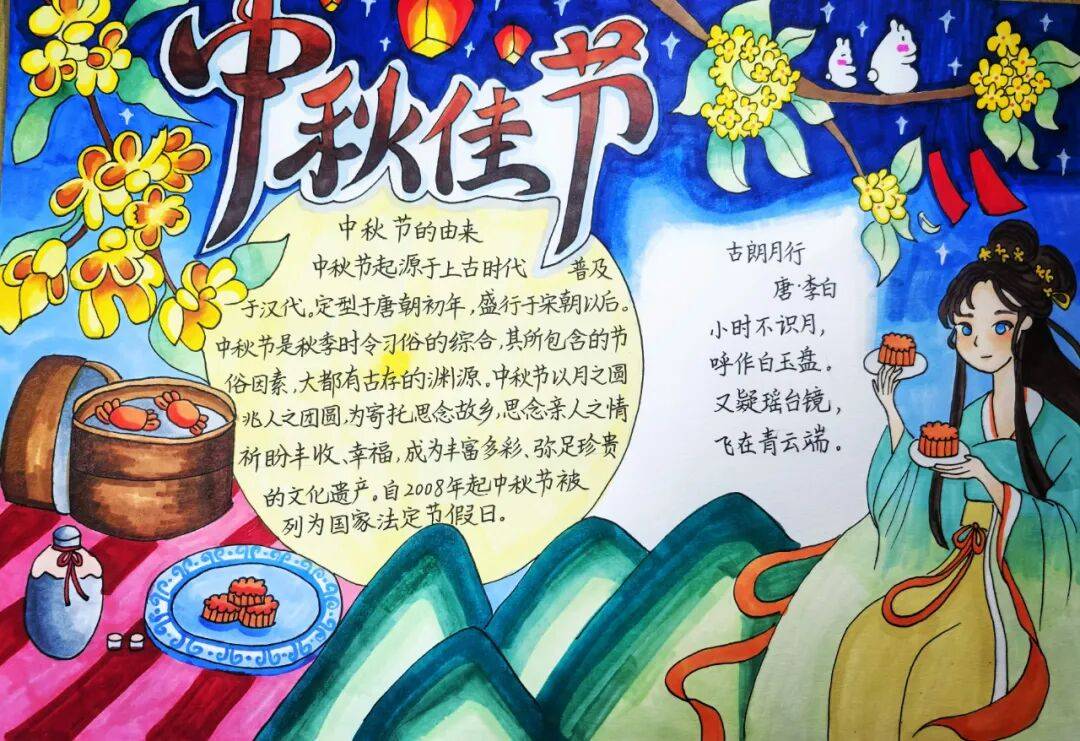 中秋佳节
中秋节的由来
中秋节起源于上古时代 普及
于汉代。定型于唐朝初年,盛行于宋朝以后。
中秋节是秋季时令习俗的综合,其所包含的节
俗因素,大都有古存的渊源。中秋节以月之圆
兆人之团圆,为寄托思念故乡,思念亲人之情
祈盼丰收、幸福,成为丰富多彩、弥足珍贵
的文化遗产。自2008年起中秋节被
列为国家法定节假日。
古朗月行
唐·李白
小时不识月,
呼作白玉盘。
又疑瑶台镜,
飞在青云端。